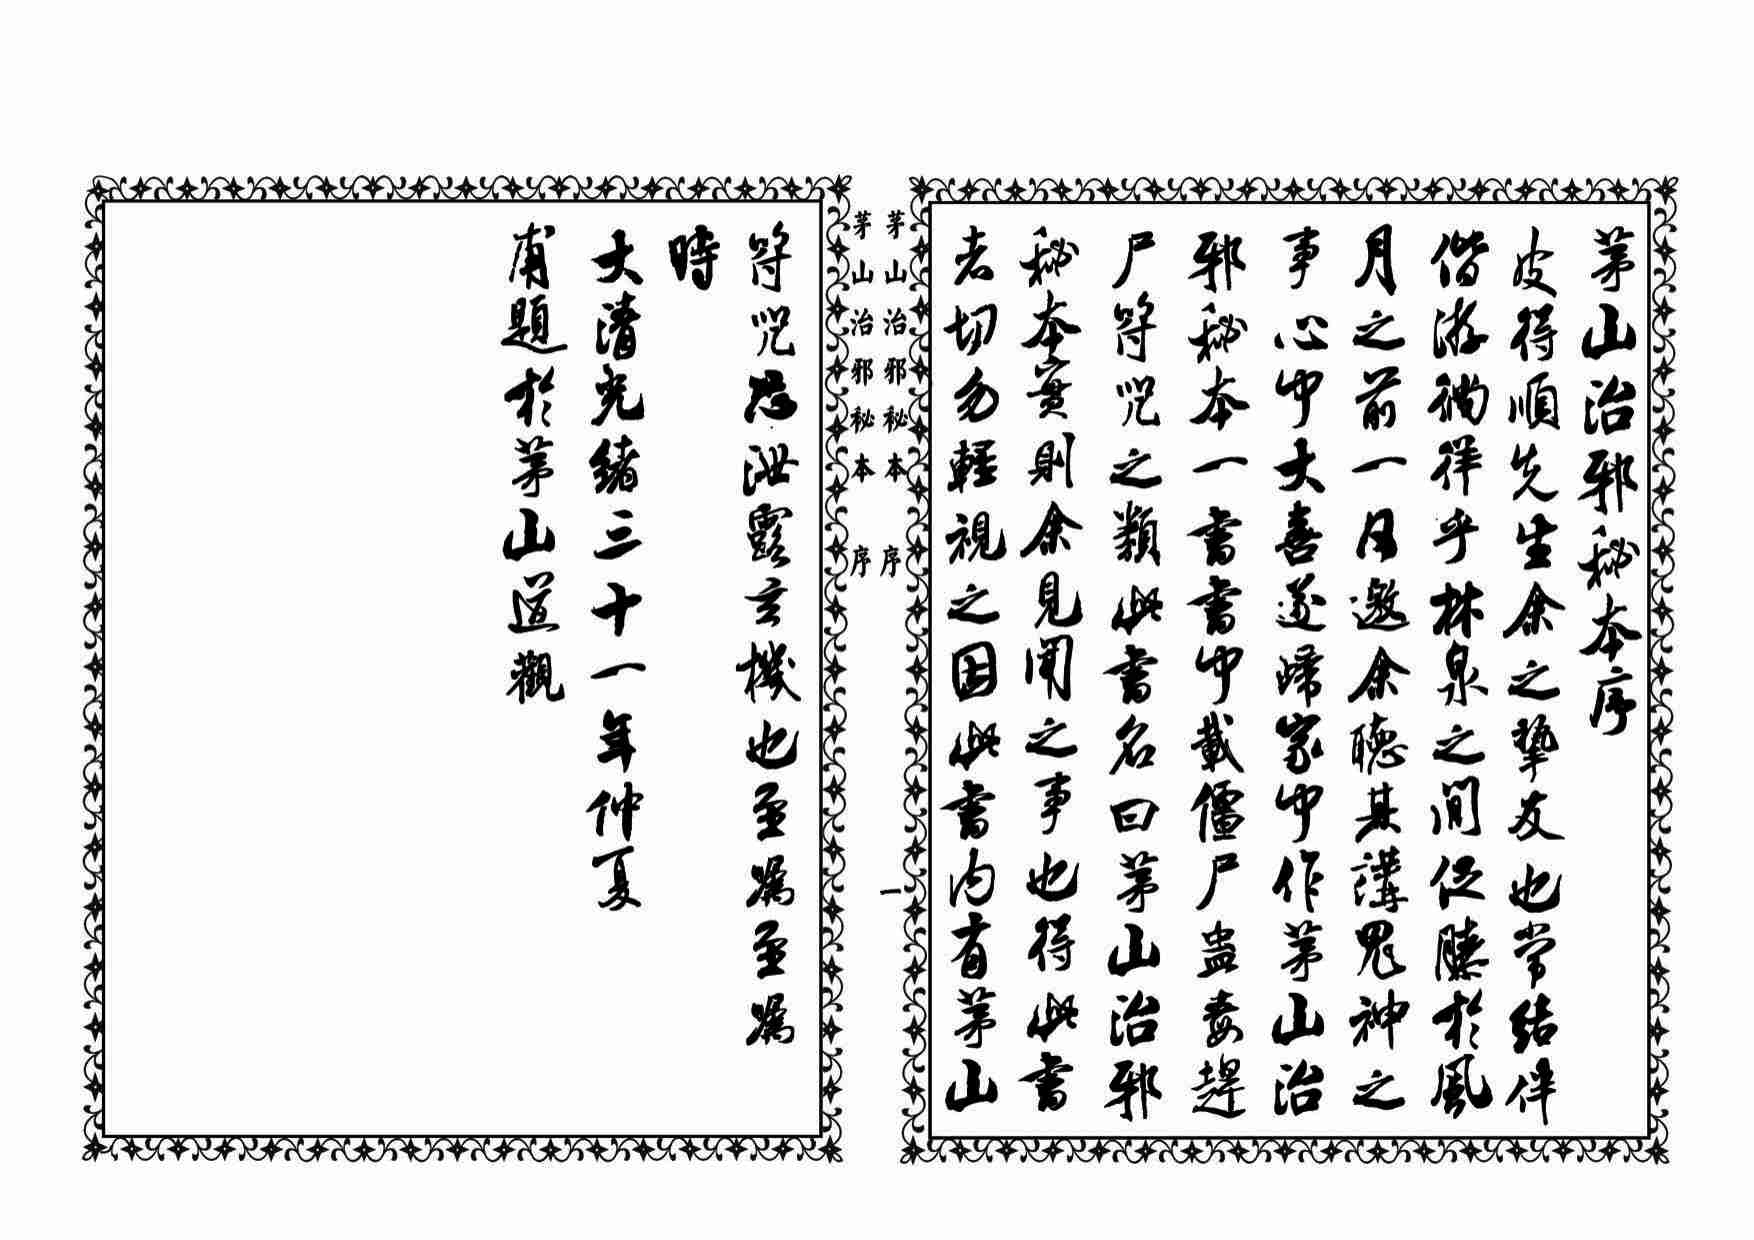 茅山治邪秘本序
皮得順先生余之摯友也常結伴
偕游徜徉乎林泉之間促膝於風
月之前一日邀余聽其講鬼神之
事心中大喜遂歸家中作茅山治
邪秘本一書書中載僵尸蛊毒趕
尸符咒之類此書名曰茅山治邪
秘本實則余見聞之事也得此書
者切勿輕視之因此書內有茅山
茅山治邪秘本 序
一
茅山治邪秘本 序
符咒恐泄露玄機也至囑至囑
時
大清光緒三十一年仲夏
甫題於茅山道觀